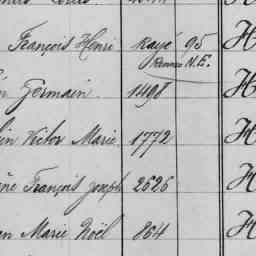 François Henri Rayé 95 H
Rennes N.E.
Germain 1498 H
Victor Marie 1772 H
François Joseph 2626 H
Marie Noël 864 H